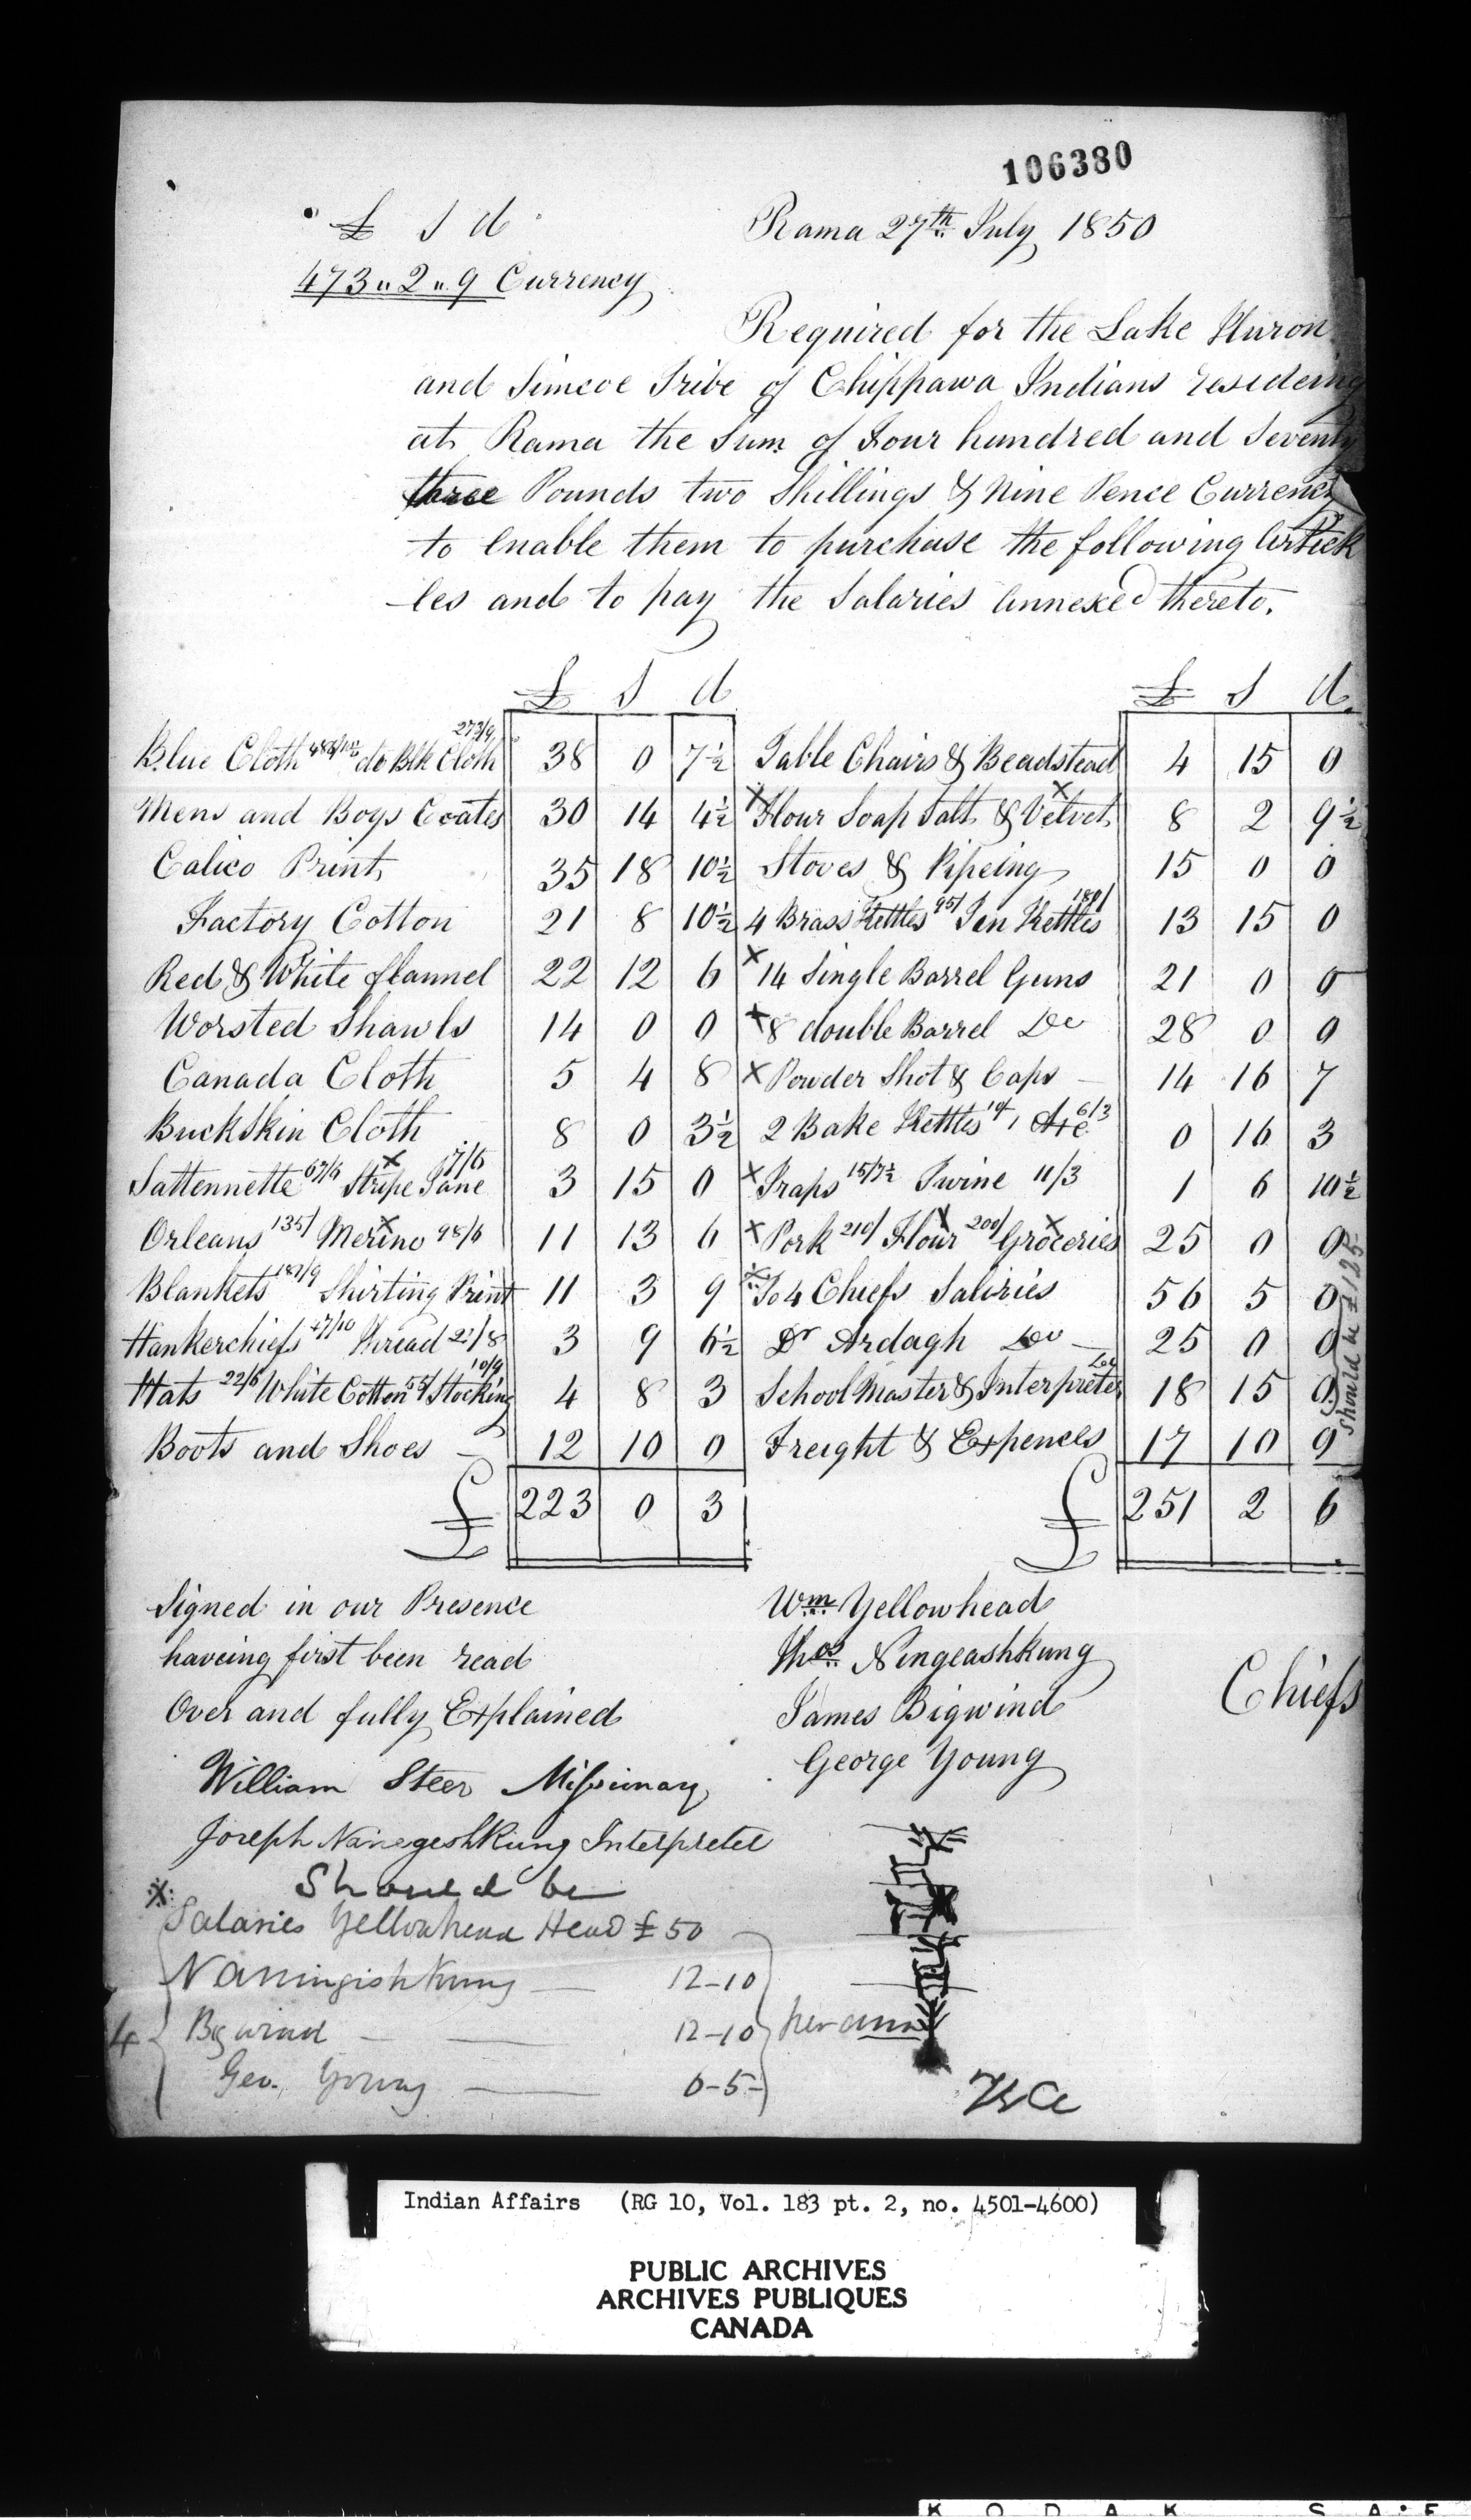 106380
£ s d
Rama 27th July 1850
473 " 2 " 9 Currency
Required for the Lake Huron
and Simcoe Tribe of Chippawa Indians resideing
at Rama the Sum of Four hundred and Seventy
three Pounds two Shillings & Nine Pence Currency
to Enable them to purchase the following Artick
-les and to pay the Salaries Annexed thereto.
£ s d £ s d
Blue Cloth do Blk Cloth 273/9 38 0 7½ Table Chairs & Beadstead 4 15 0
Mens and Boys Coates 30 14 4½ x Flour Soap Salt & Velvet x 8 2 9½
Calico Print 35 18 10½ Stoves & Pipeing 15 0 0
Factory Cotton 21 8 10½ 4 Brass Kettles 95/ Ten Kettles 180/ 13 15 0
Red & White flannel 22 12 6 x 14 Single Barrel Guns 21 0 0
Worsted Shawls 14 0 0 x 8 double Barrel Do 28 0 0
Canada Cloth 5 4 8 x Powder Shot & Caps 14 16 7
Buckskin Cloth 8 0 3½ 2 Bake Kettles 10/, Axe 6/3 0 16 3
Sattennette 67/6 Stripe Jane x 7/6 3 15 0 x Traps 15/7½ Twine 11/3 1 6 10½
Orleans 135/ Merino x 98/6 11 13 6 x Pork 210/ Flour x 200/ Groceries x 25 0 0
Blankets 187/9 Shirting Print 11 3 9 x To 4 Chiefs Saliries 56 5 0
Hankerchiefs 47/10 Thread 21/8 3 9 6½ Dr Ardagh Do 25 0 0
Hats 22/6 White Cotton 55/ Stocking 10/9 4 8 3 School Master & Interpreter Do 18 15 0
Boots and Shoes 12 10 0 Freight & Expences 17 10 0
should be £125
£ 223 0 3 £ 251 2 6
Signed in our Presence
haveing first been read
Over and fully Explained
William Steer Missionary
Joseph Nanegeshkung Interpreter
Wm Yellowhead
Thos Ningeashkung
James Bigwind
George Young
Chiefs
x Should be
Salaries Yellowhead Head £50
Naningishkung 12-10
4 Bigwind 12-10 per ann
Geo. Young 6-5-
Indian Affairs (RG 10, Vol. 183 pt. 2, no. 4501-4600)
PUBLIC ARCHIVES
ARCHIVES PUBLIQUES
CANADA
KODAK SAFE